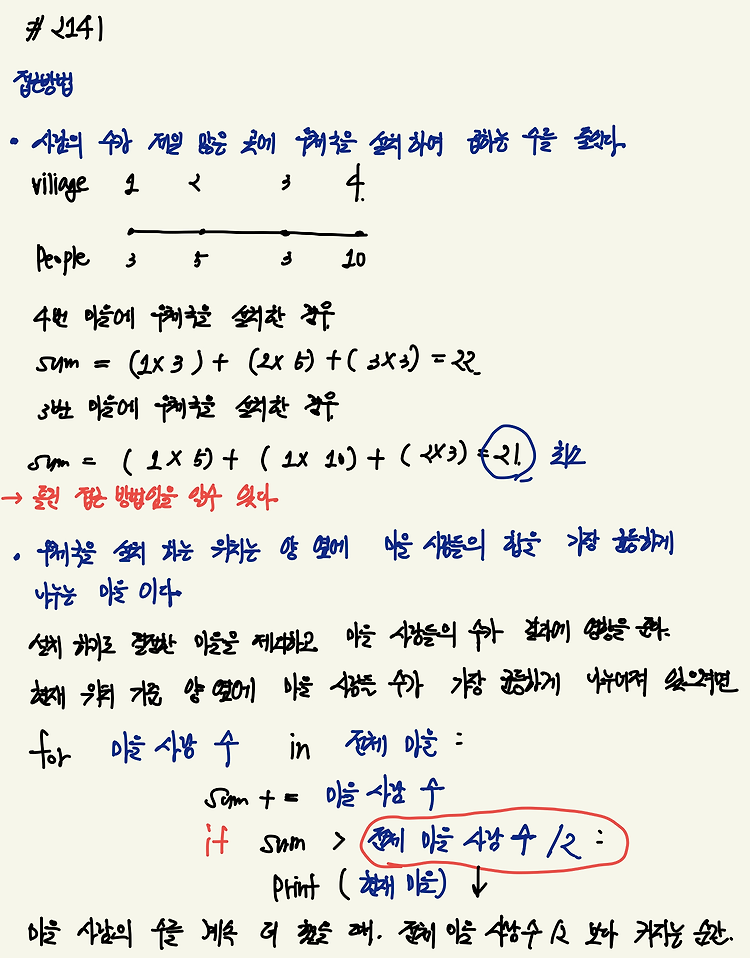 # 2141
접근방법
• 사람의 수가 제일 많은 곳에 우체국을 설치하여 곱하는 수를 줄인다.
village 1 2 3 4
People 3 5 3 10
4번 마을에 우체국을 설치한 경우
sum = (1×3) + (2×5) + (3×3) = 22
3번 마을에 우체국을 설치한 경우
sum = (1×5) + (1×10) + (2×3) = 21. 최소
→ 틀린 접근 방법임을 알수 있다.
• 우체국을 설치 하는 위치는 양 옆에 마을 사람들의 합을 가장 균등하게
나누는 마을 이다.
설치 하기로 결정한 마을을 제외하고 마을 사람들의 수가 결과에 영향을 준다.
현재 위치 기준 양 옆에 마을 사람들 수가 가장 균등하게 나누어져 있으려면
for 마을 사람 수 in 전체 마을 :
sum += 마을 사람 수
if sum > 전체 마을 사람 수 /2 :
print (현재 마을) ↓
마을 사람의 수를 계속 더 했을 때. 전체 마을 사람수 /2 보다 커지는 순간.